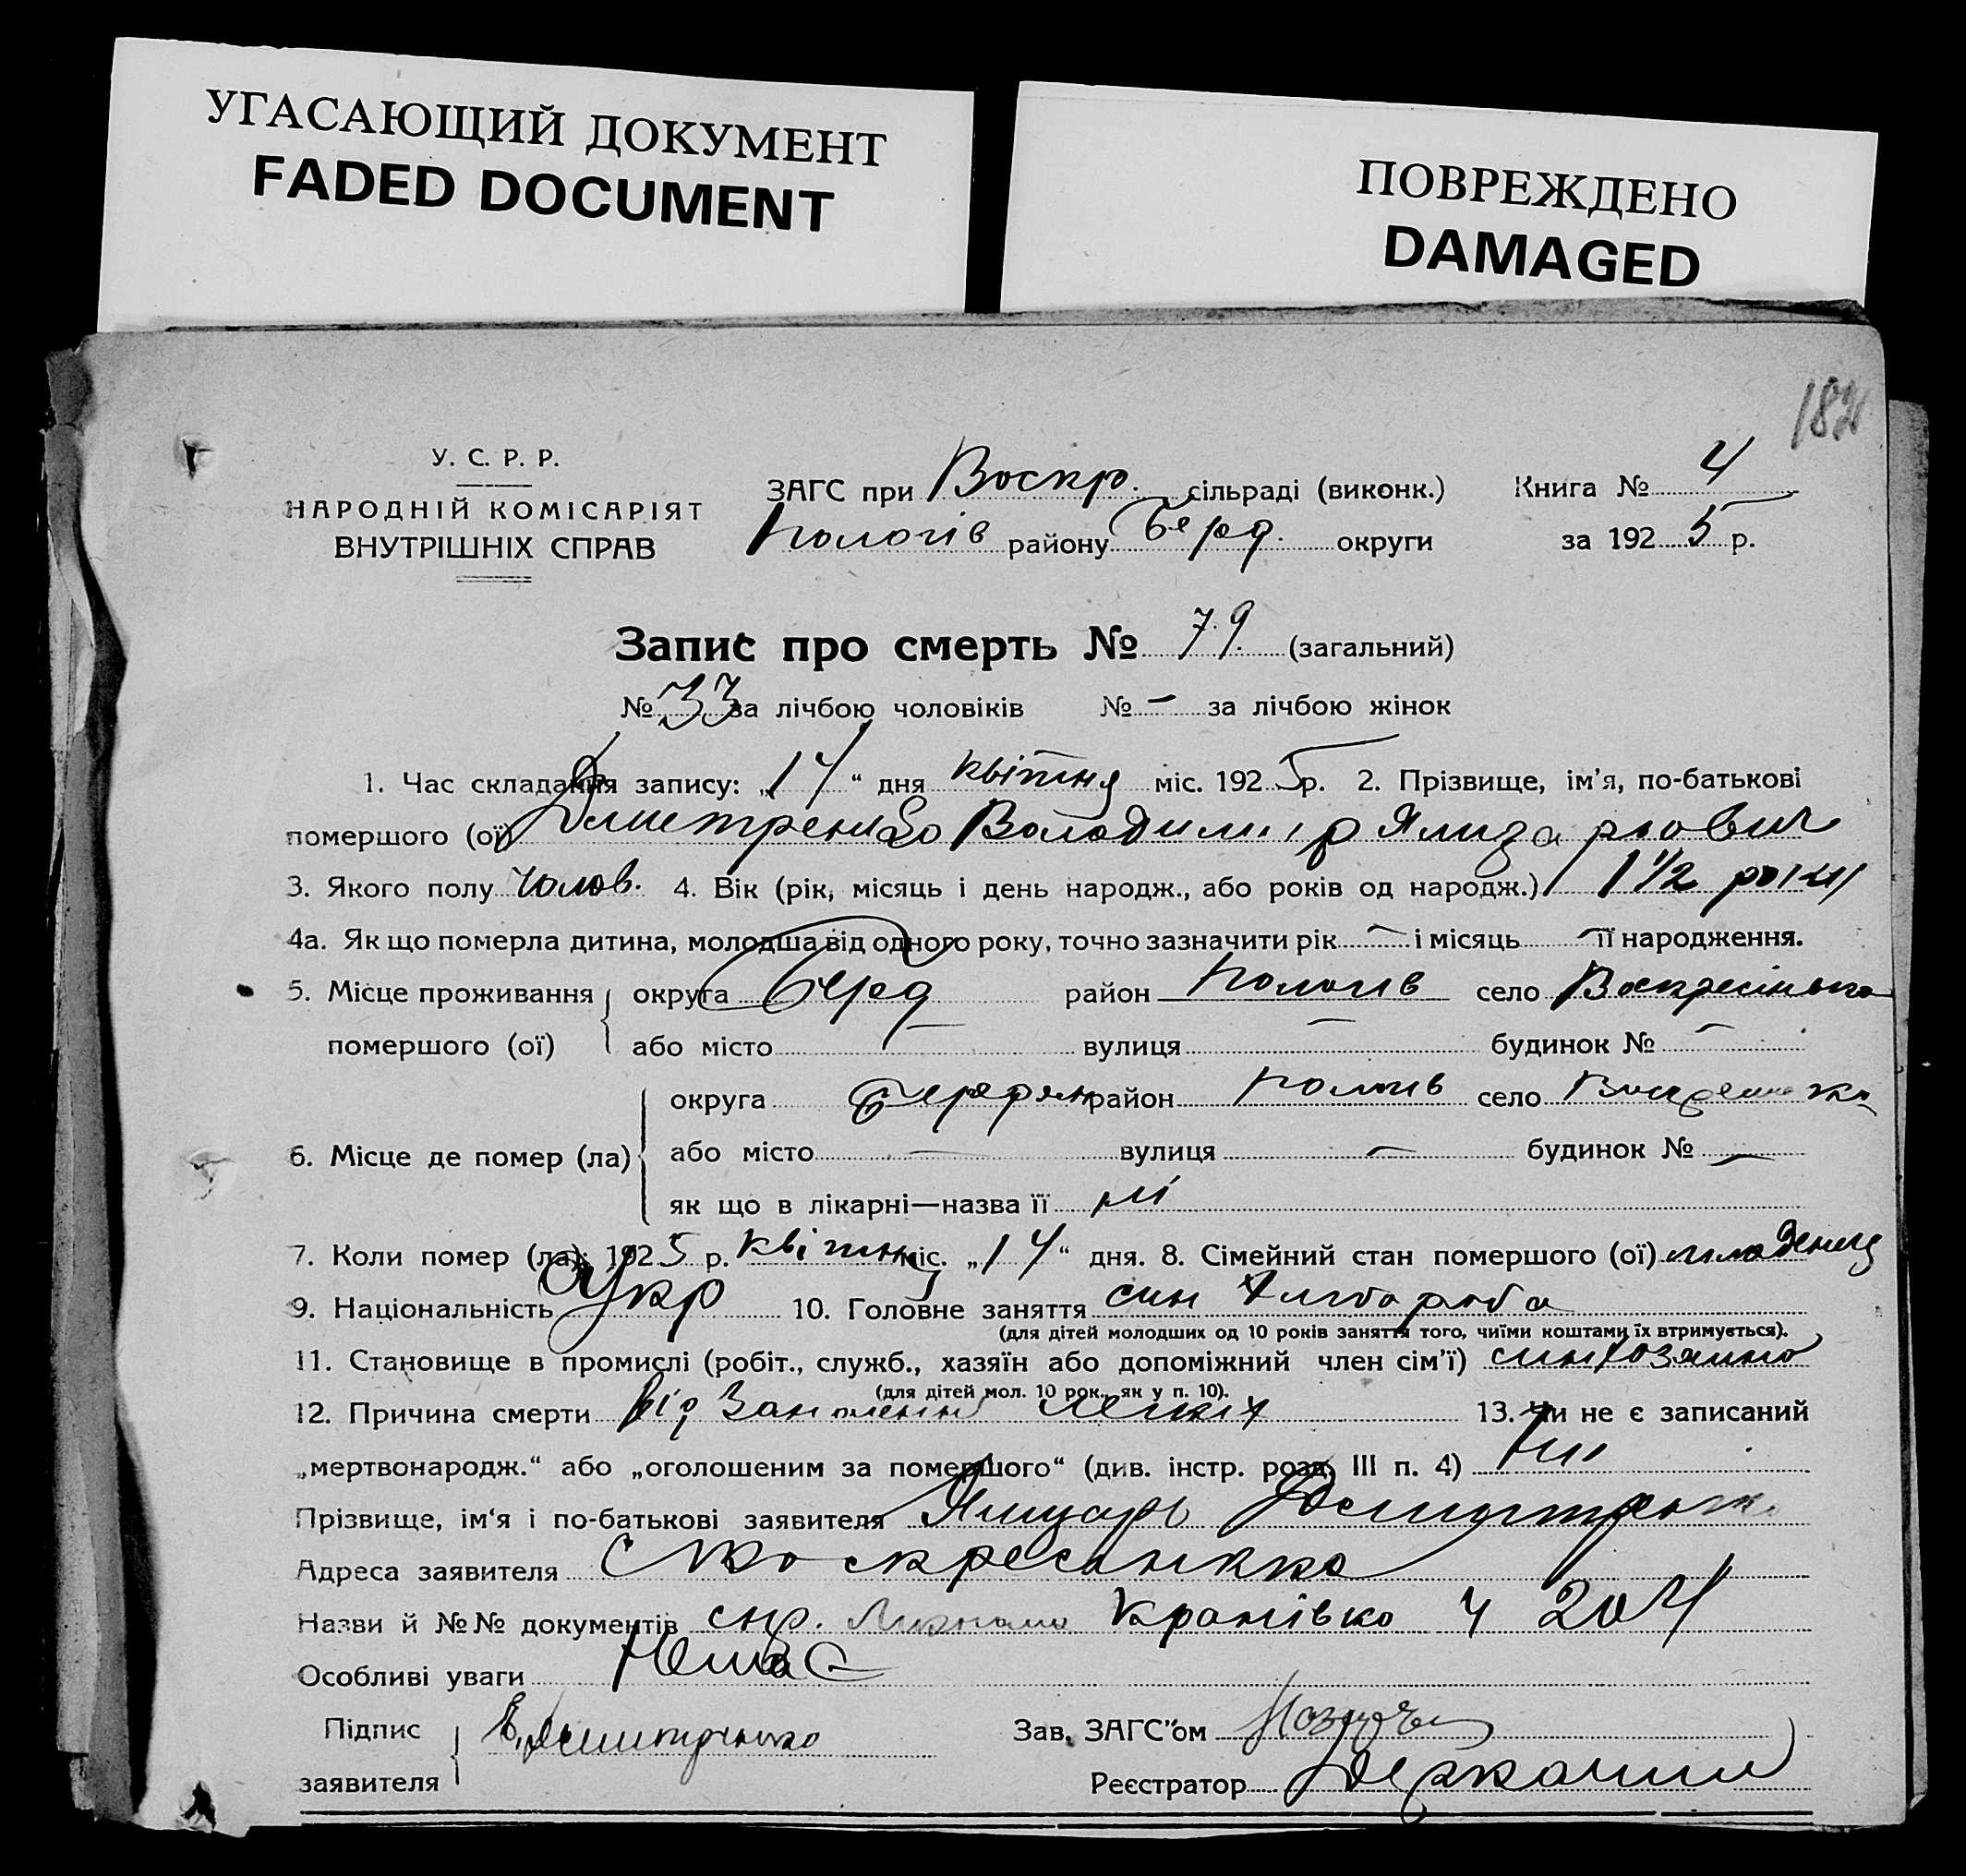 УГАСАЮЩИЙ ДОКУМЕНТ
FADED DOCUMENT
ПОВРЕЖДЕНО
DAMAGED
У. С. Р. Р.
НАРОДНІЙ КОМІСАРІЯТ
ВНУТРІШНІХ СПРАВ
ЗАГС при Воскр. сільраді (виконк.) Книга № 4
Пологів району Берд. округи за 1925 р.
Запис про смерть № 79. (загальний)
№ 33 за лічбою чоловіків № – за лічбою жінок
1. Час складання запису: „14“ дня квітня міс. 1925 р. 2. Прізвище, ім'я, по-батькові
помершого (ої) Дмитренко Володимир
3. Якого полу Чолов. 4. Вік (рік, місяць і день народж., або років од народж.) 1 1/2 роки
4а. Як що померла дитина, молодша від одного року, точно зазначити рік – і місяць – її народження.
5. Місце проживання округа Берд район Пологів село Воскресінька
помершого (ої) або місто – вулиця – будинок № –
округа район Пологів село
6. Місце де помер (ла) або місто – вулиця – будинок № –
як що в лікарні—назва її ні
7. Коли помер (ла): 1925 р. квітня міс. „14“ дня. 8. Сімейний стан помершого (ої) младенец
9. Національність Укр 10. Головне заняття син хлібороба
(для дітей молодших од 10 років заняття того, чиїми коштами їх втримується).
11. Становище в промислі (робіт., служб., хазяїн або допоміжний член сім'ї) син
(для дітей мол. 10 рок., як у п. 10).
12. Причина смерти від легких 13. Чи не є записаний
„мертвонародж.“ або „оголошеним за помершого“ (див. інстр. розд. III п. 4) Ні
Прізвище, ім'я і по-батькові заявителя
Адреса заявителя с
Назви й №№ документів спр. ч 204
Особливі уваги Немає
Підпис Дмитренко Зав. ЗАГС"ом
заявителя Реєстратор